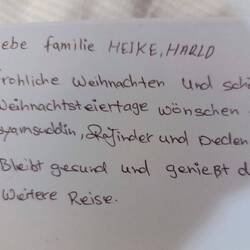 ebe familie HEIKE, HARLD
röhliche Weihnachten und schö
Weihnachtsteiertage wönschen
Rajinder und
Bleibt gesund und genießt d
Weitere Reise.